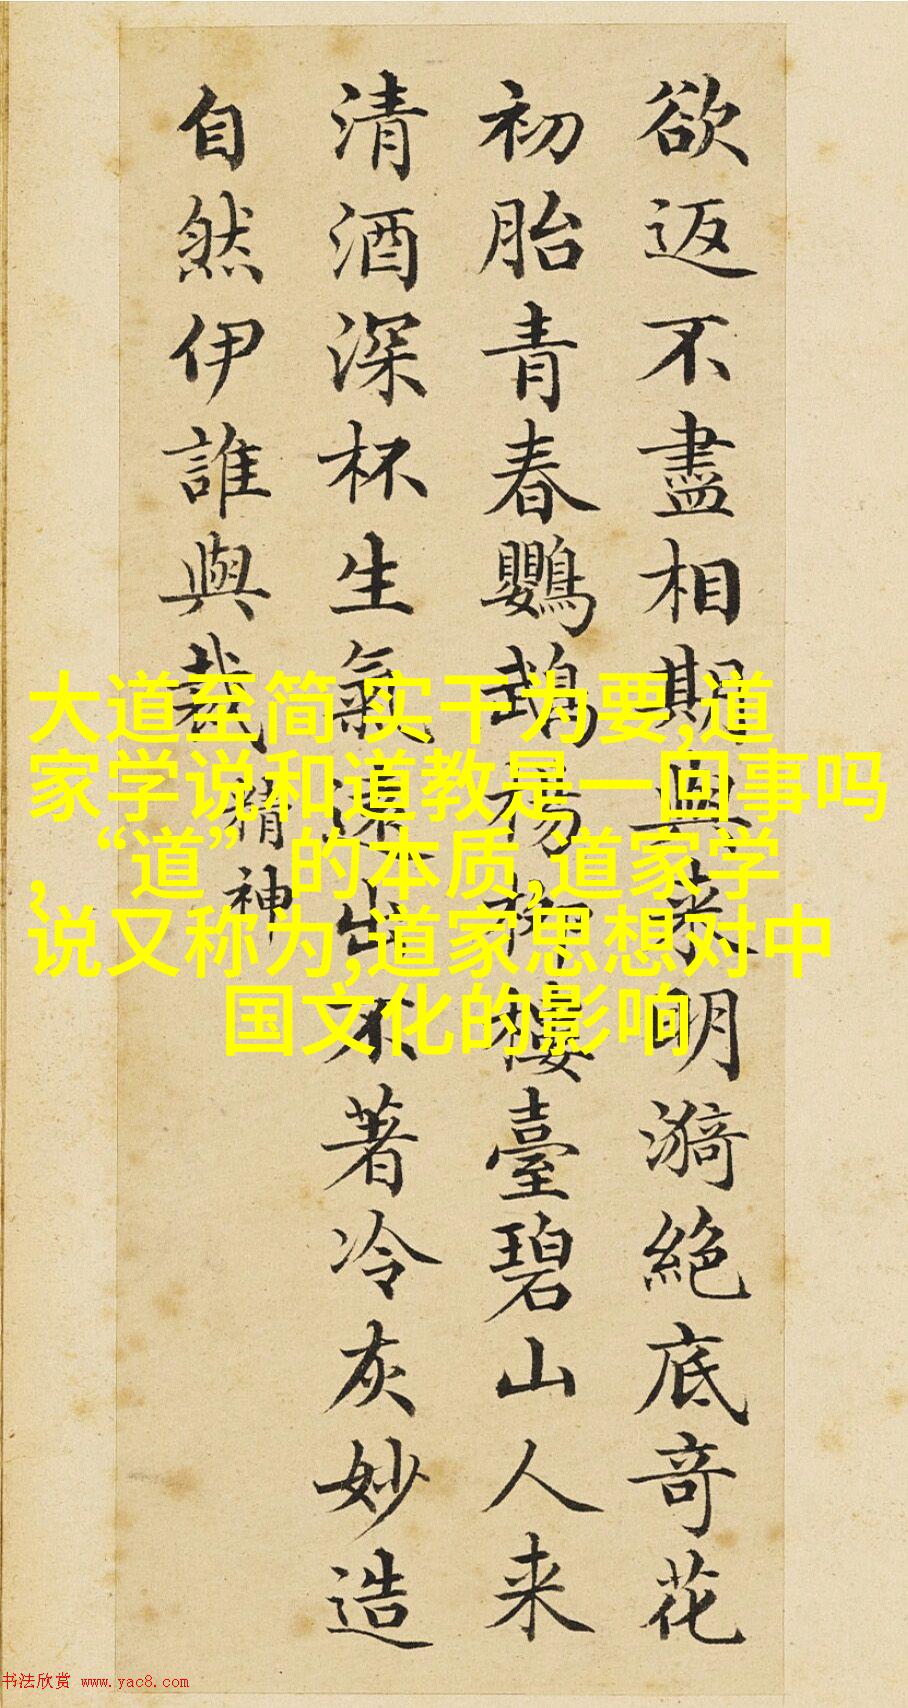 欲返不盡相期與來明漪絕底奇花
初胎青春鸚鵡楊柳樓臺碧山人来
清酒深杯生氣遠出不著冷灰妙造
自然伊誰與裁
精神
大道至简,实干为要,道
家学说和道教是一回事吗
,“道”的本质,道家学
说又称为,道家思想对中
国文化的影响
书法欣赏 www.yac8.com